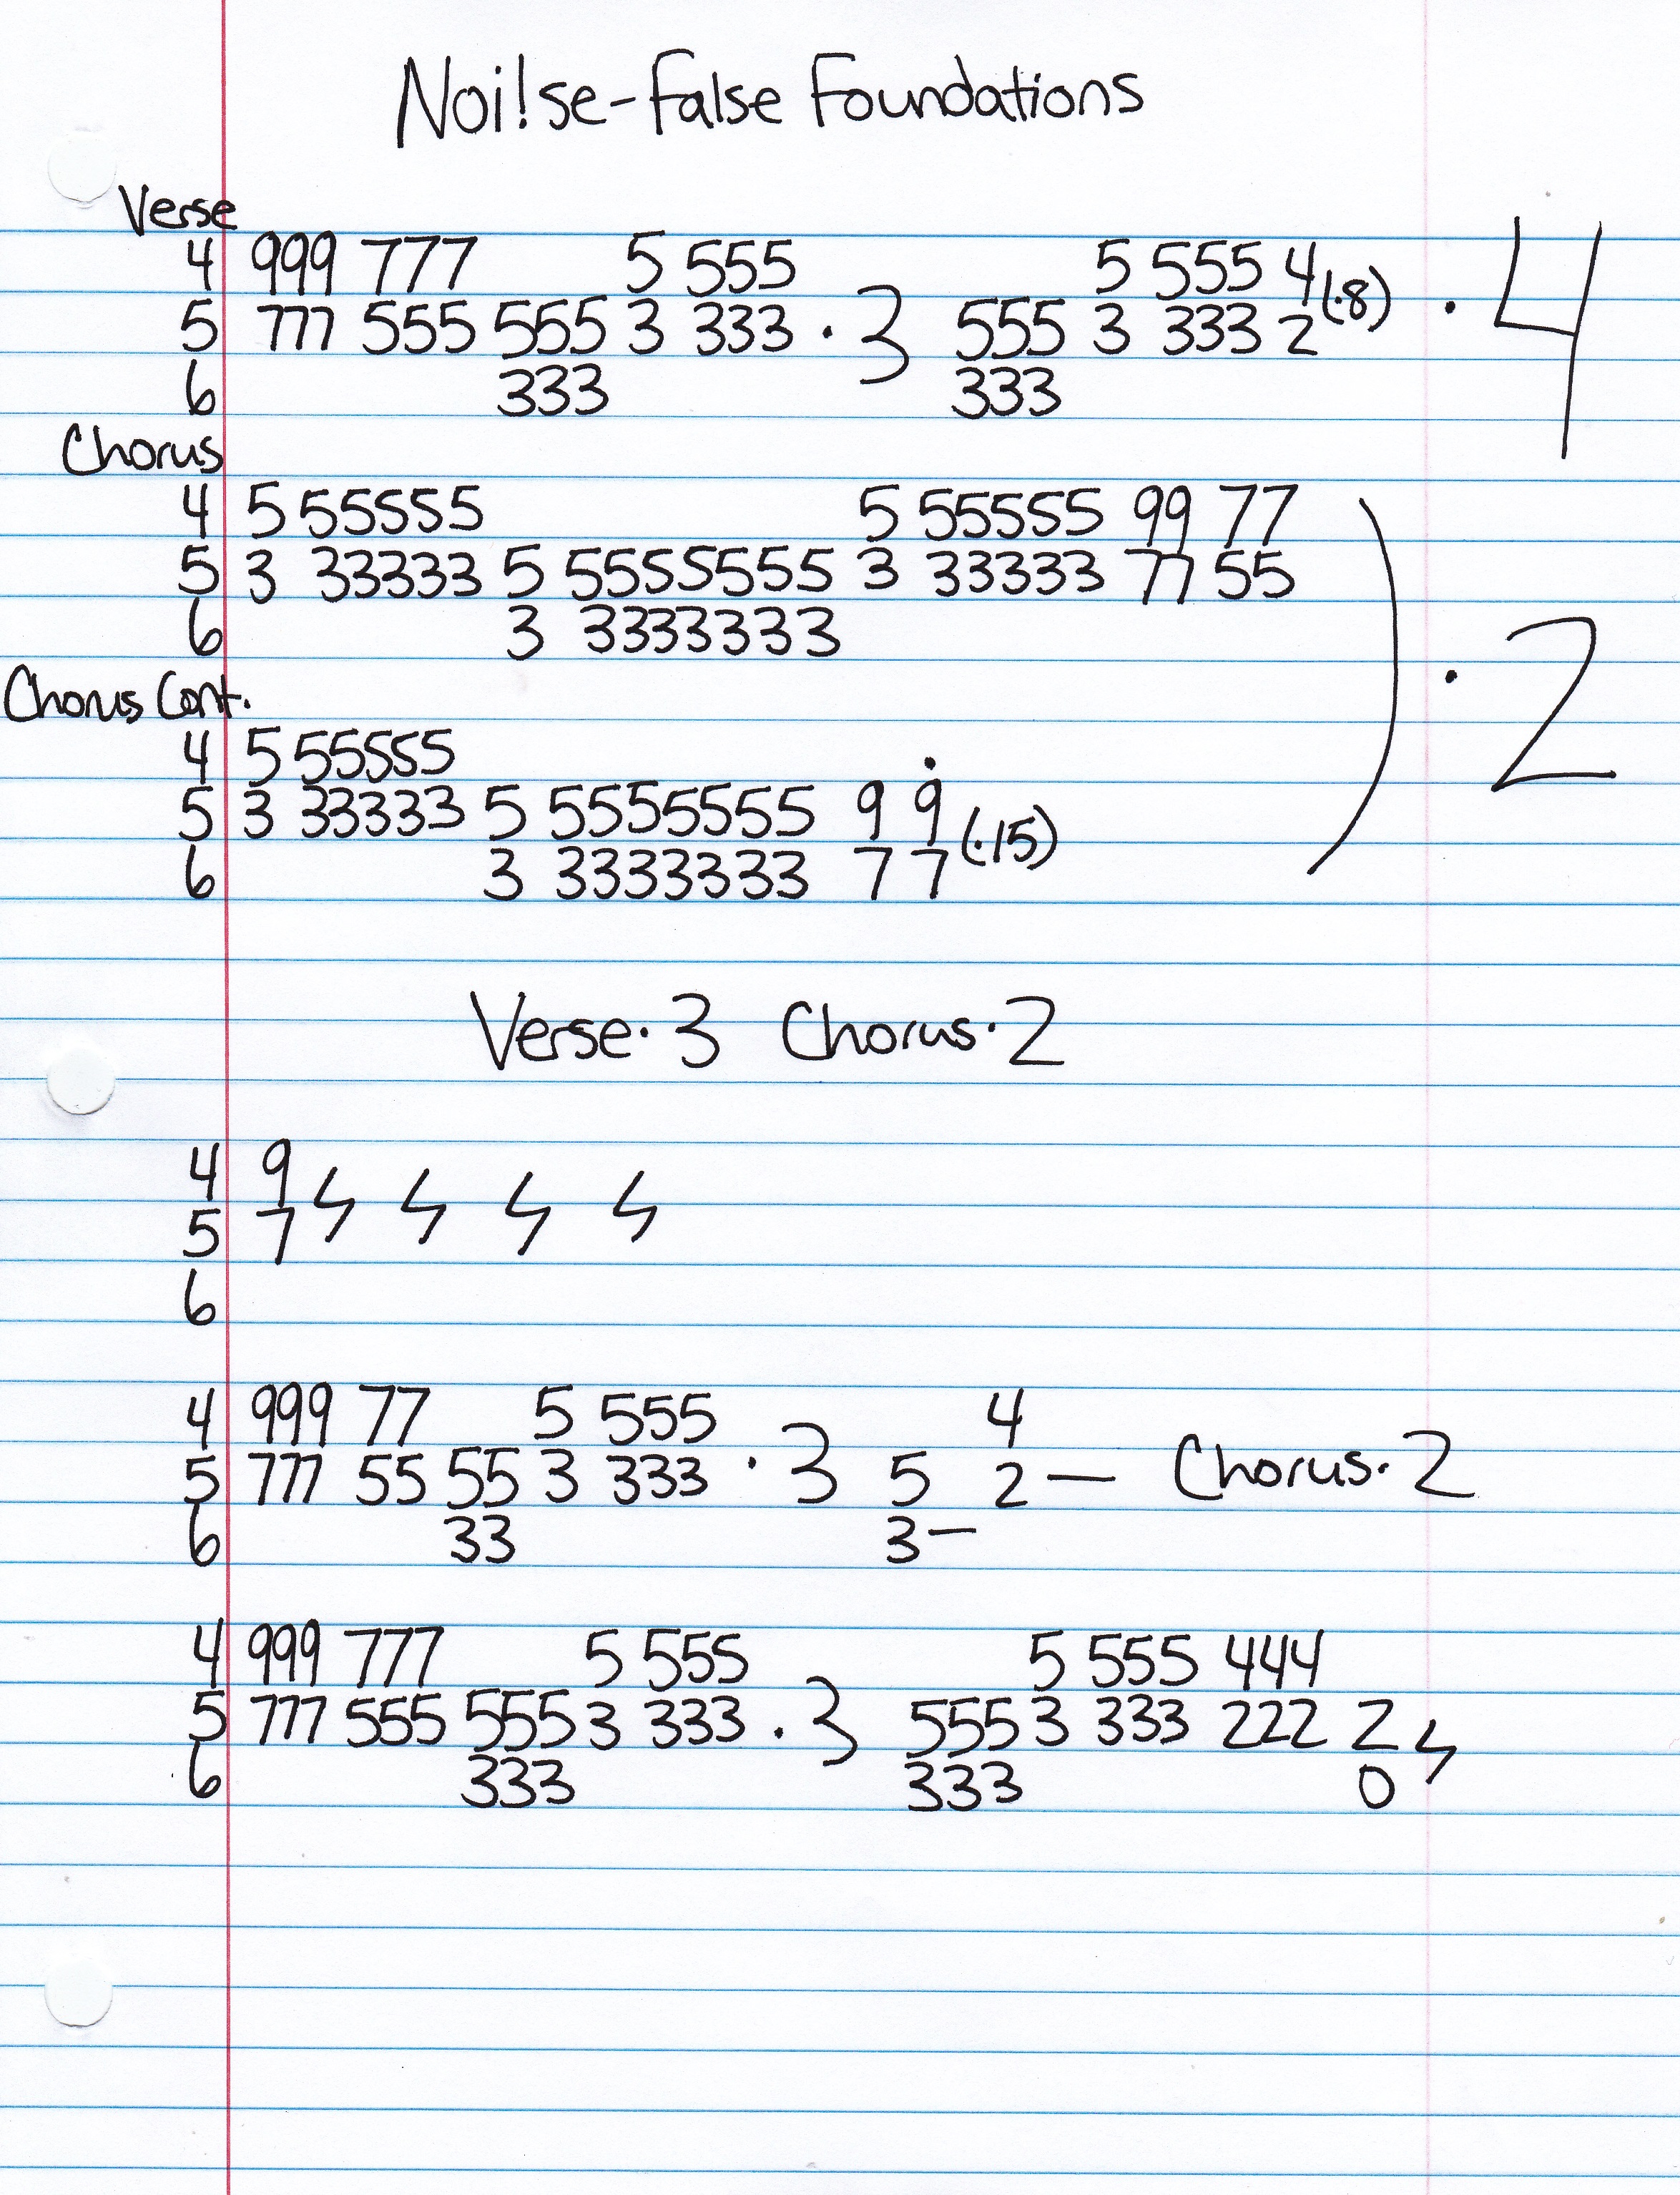 Noi!se-False Foundations
Verse
4 999 777 5 555 5 555 4(·8) · 4
5 777 555 555 3 333 · 3 555 3 333 2
6 333 333
Chorus
4 5 55555 5 55555 99 77
5 3 33333 5 5555555 3 33333 77 55
6 3 3333333
) · 2
Chorus Cont.
4 5 55555
5 3 33333 5 5555555 9 9̇ (·15)
6 3 3333333 7 7
Verse·3 Chorus·2
4 9
5 7
6
4 999 77 5 555 4
5 777 55 55 3 333 · 3 5 2— Chorus·2
6 33 3—
4 999 777 5 555 5 555 444
5 777 555 555 3 333 · 3 555 3 333 222 2
6 333 333 0